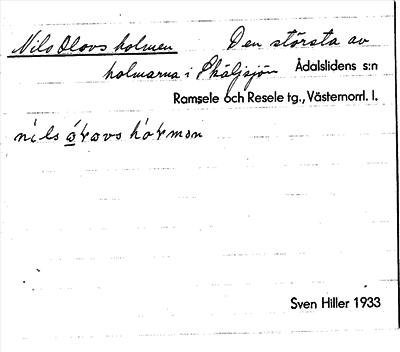 Nils Olovs holmen Den största av
holmarna i Skäljsjön Ådalslidens s:n
Ramsele och Resele tg., Västernorrl. l.
nils
Sven Hiller 1933